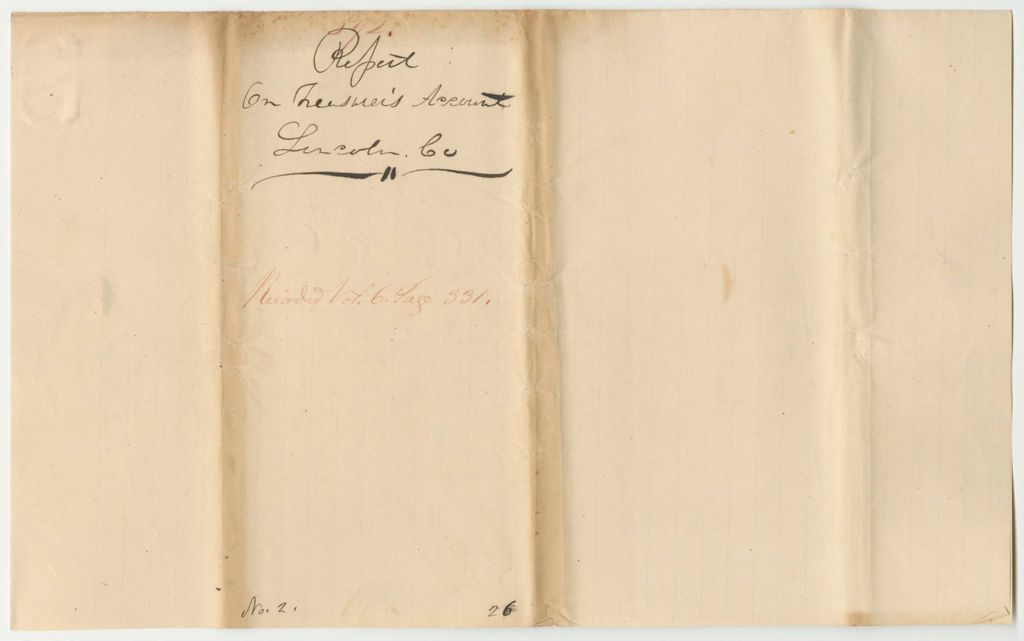 Report
On Treasurer's Account
Lincoln. Co
Recorded Vol. 6. Page 331.
No. 2. 26